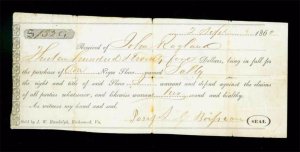 186
Received of John Ragland
Thirteen hundred & twenty Dollars, being in full for
the purchase of One Negro Slave named Sally
the right and title of said Slave warrant and defend against the claims
of all parties whatsoever, and likewise warrant sound and healthy.
As witness my hand and seal
SEAL
Sold by J. W. Randolph, Richmond, Va.